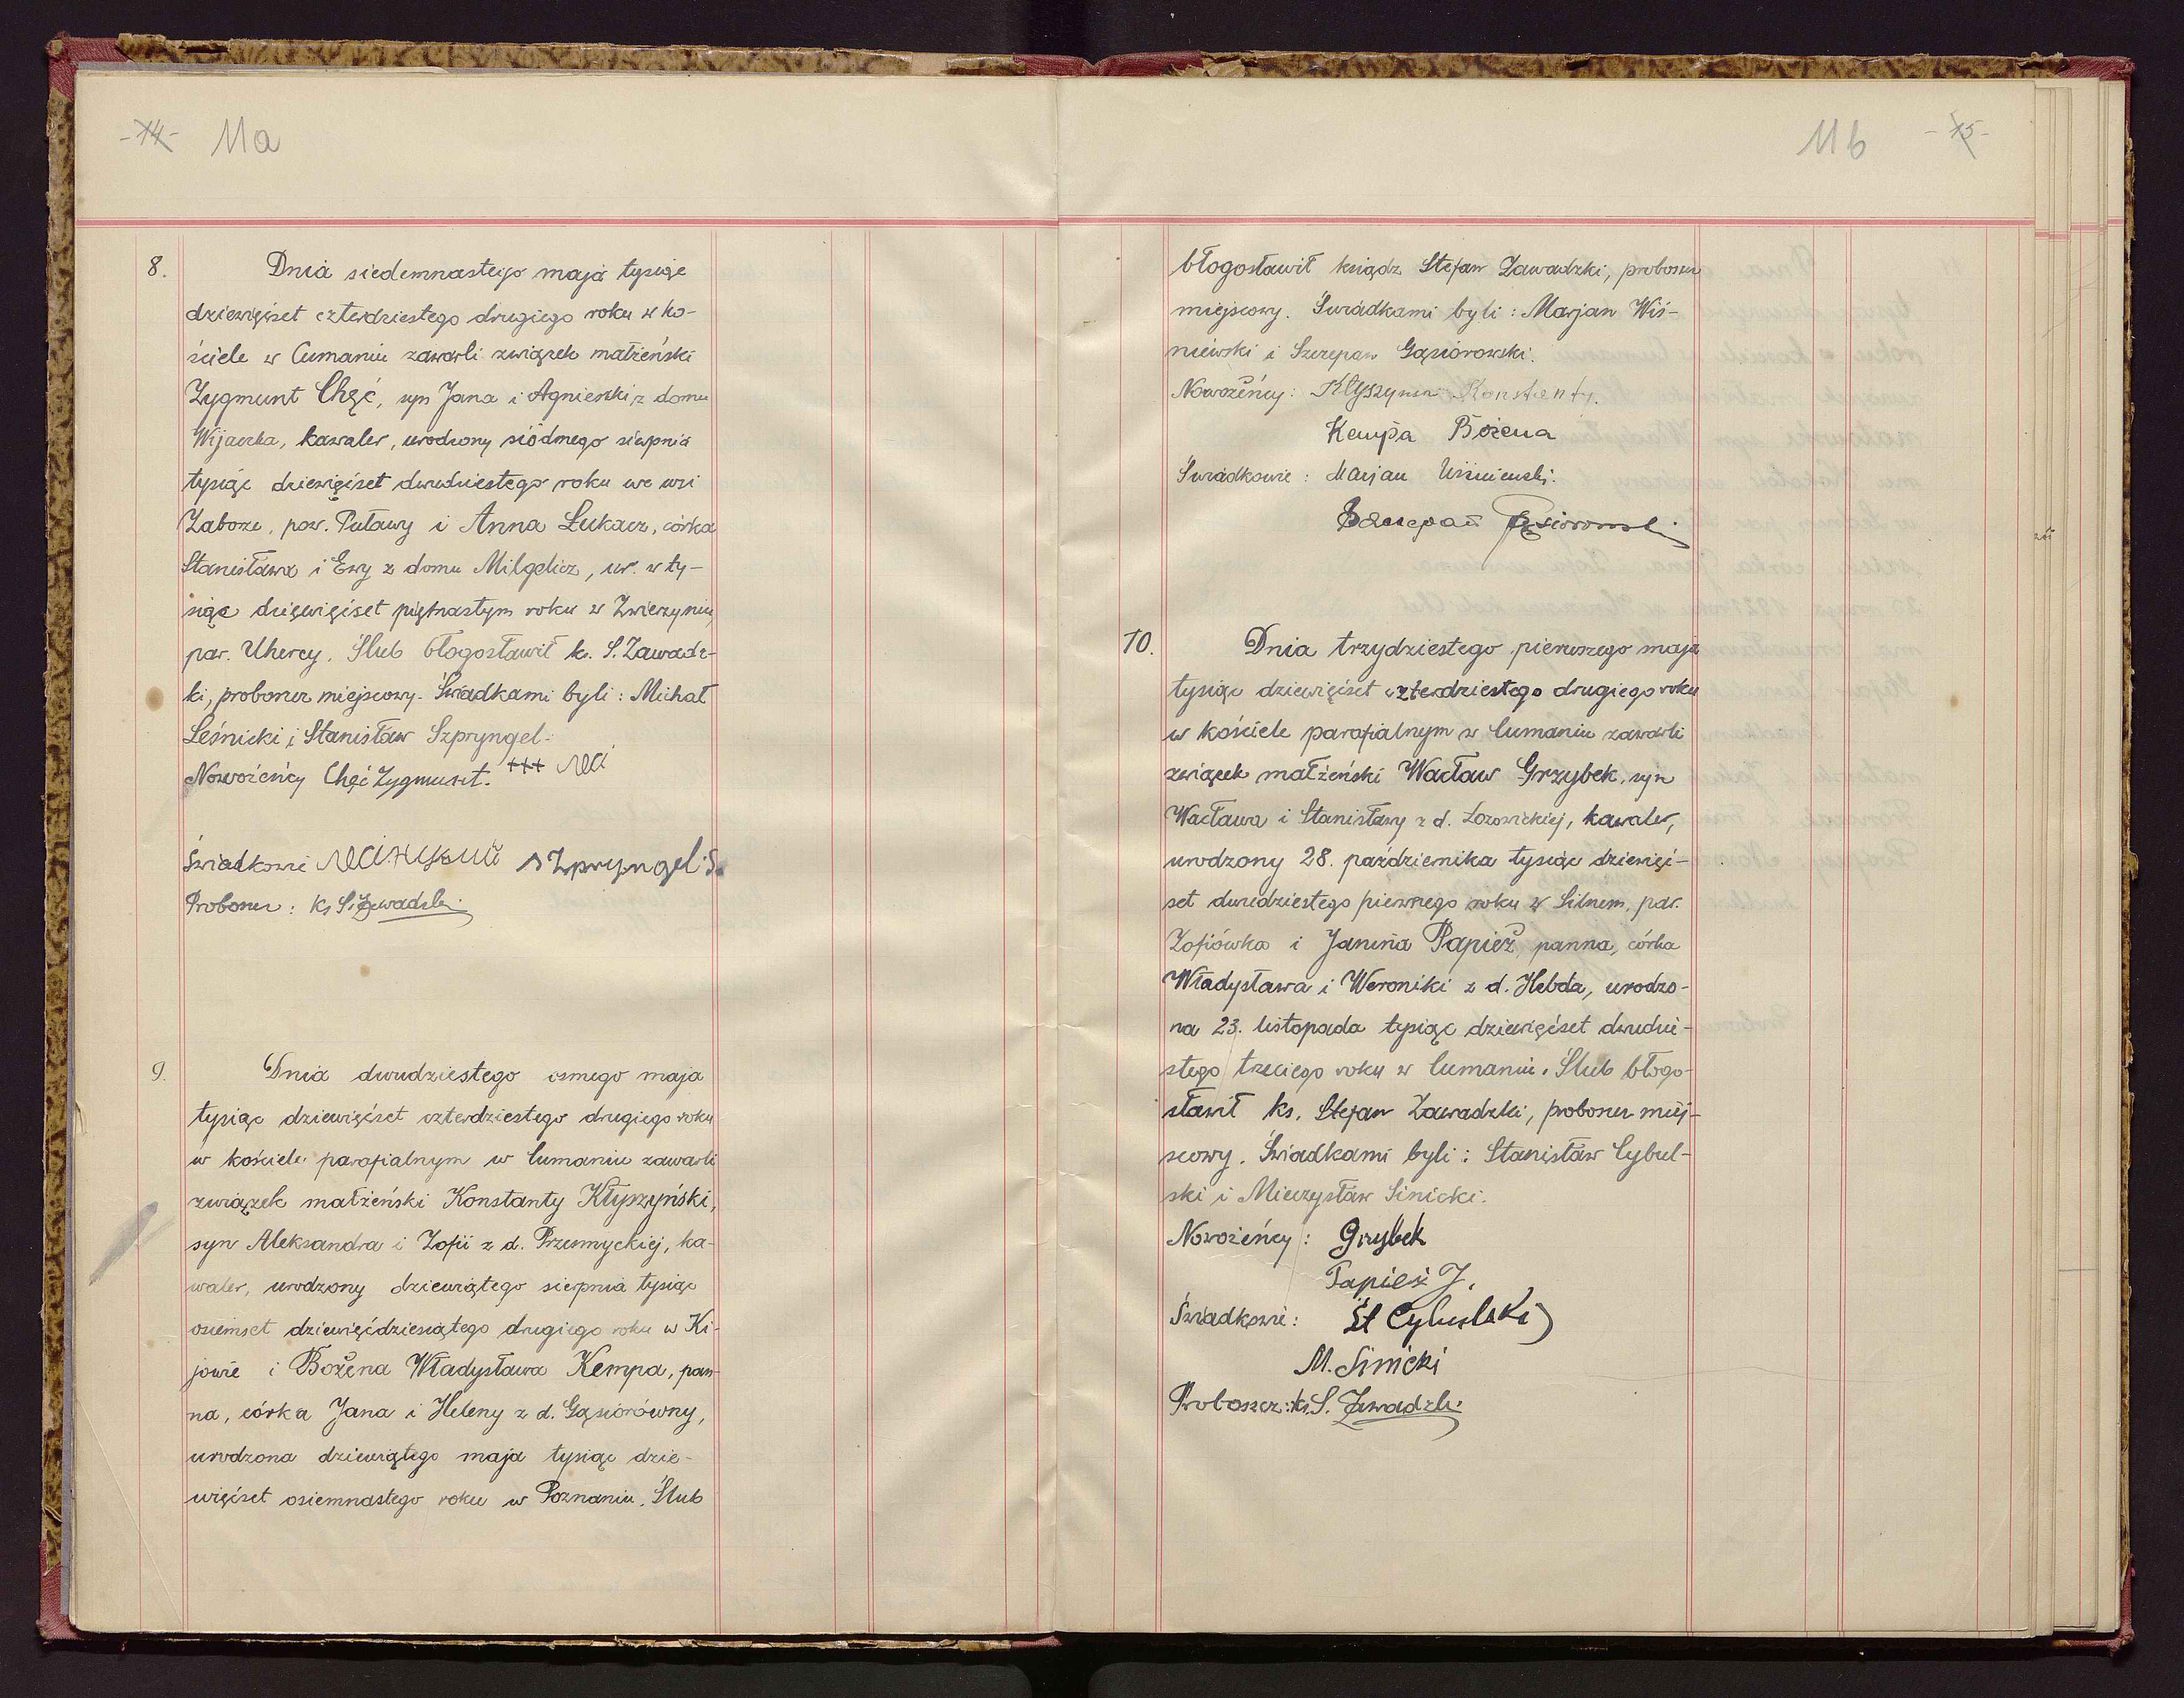 -14- 11a
8. Dnia siedemnastego maja tysiąc
dziewięćset czterdziestego drugiego roku w ko-
ściele w Cumaniu zawarli związek małżeński
Zygmunt Chęć, syn Jana i Agnieszki z domu
Wijaczka, kawaler, urodzony siódmego sierpnia
tysiąc dziewięćset dwudziestego roku we wsi
Zaboże, pow. Puławy i Anna Łukacz, córka
Stanisława i Ewy z domu Milgelicz, ur. w ty-
siąc dziewięćset piętnastym roku w Zwierzyniu,
par. Uhercy. Ślub błogosławił ks. S. Zawadz-
ki, proboszcz miejscowy. Świadkami byli: Michał
Leśnicki i Stanisław Szpryngel.
Nowożeńcy Chęć Zygmunt. +++
Świadkowie Szpryngel S.
Proboszcz: ks S. Zawadzki.
9. Dnia dwudziestego ósmego maja
tysiąc dziewięćset czterdziestego drugiego roku
w kościele parafialnym w Cumaniu zawarli
związek małżeński Konstanty Kłyszyński,
syn Aleksandra i Zofii z d. Przesmyckiej, ka-
waler, urodzony dziewiątego sierpnia tysiąc
osiemset dziewięćdziesiątego drugiego roku w Ki-
jowie i Bożena Władysława Kempa, pan-
na, córka Jana i Heleny z d. Gąsiorówny,
urodzona dziewiątego maja tysiąc dzie-
więćset osiemnastego roku w Poznaniu. Ślub
11b -15-
błogosławił ksiądz Stefan Zawadzki, proboszcz
miejscowy. Świadkami byli: Marjan Wiś-
niewski i Szczepan Gąsiorowski.
Nowożeńcy: Konstanty.
Kempa Bożena
Świadkowie: Marjan Wiśniewski.
Szczepan Gąsiorowski
10. Dnia trzydziestego pierwszego maja
tysiąc dziewięćset czterdziestego drugiego roku
w kościele parafialnym w Cumaniu zawarli
związek małżeński Wacław Grzybek, syn
Wacława i Stanisławy z d. Łozowickiej, kawaler,
urodzony 28. października tysiąc dziewięć-
set dwudziestego pierwszego roku w Silnem, par.
Zofiówka i Janina Papież, panna, córka
Władysława i Weroniki z d. Hebda, urodzo-
na 23. listopada tysiąc dziewięćset dwudzie-
stego trzeciego roku w Cumaniu. Ślub błogo-
sławił ks. Stefan Zawadzki, proboszcz miej-
scowy. Świadkami byli: Stanisław Cybul-
ski i Mieczysław Sinicki.
Nowożeńcy: Grzybek
Papież J.
Świadkowie: St Cybulski
M. Sinicki
Proboszcz: ks. S. Zawadzki.